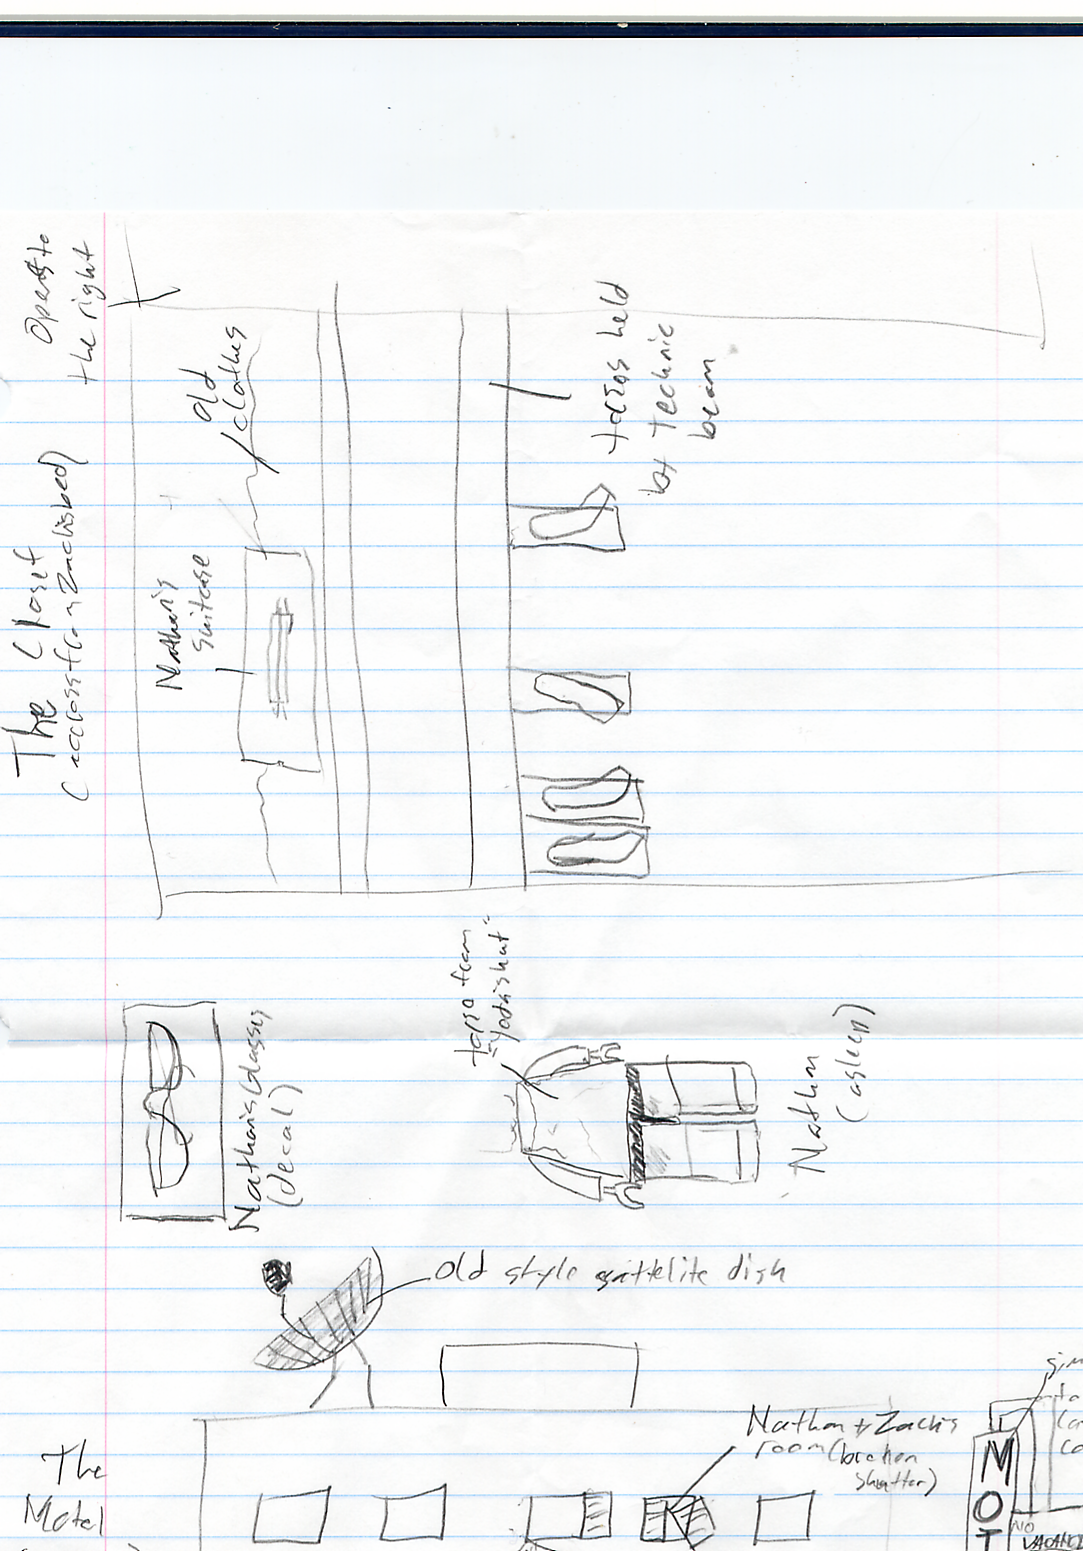 The Closet
(access from Zach's bed)
Opens to
the right
Nathan's
suitcase
old
clothes
torsos held
by Technic
beam
Nathan's Glasses
(decal)
torso from
"Yoda's hut"
Nathan
(asleep)
old style sattelite dish
The
Motel
Nathan + Zach's
room (broken
shutter)
M
O
T
NO
VACANC